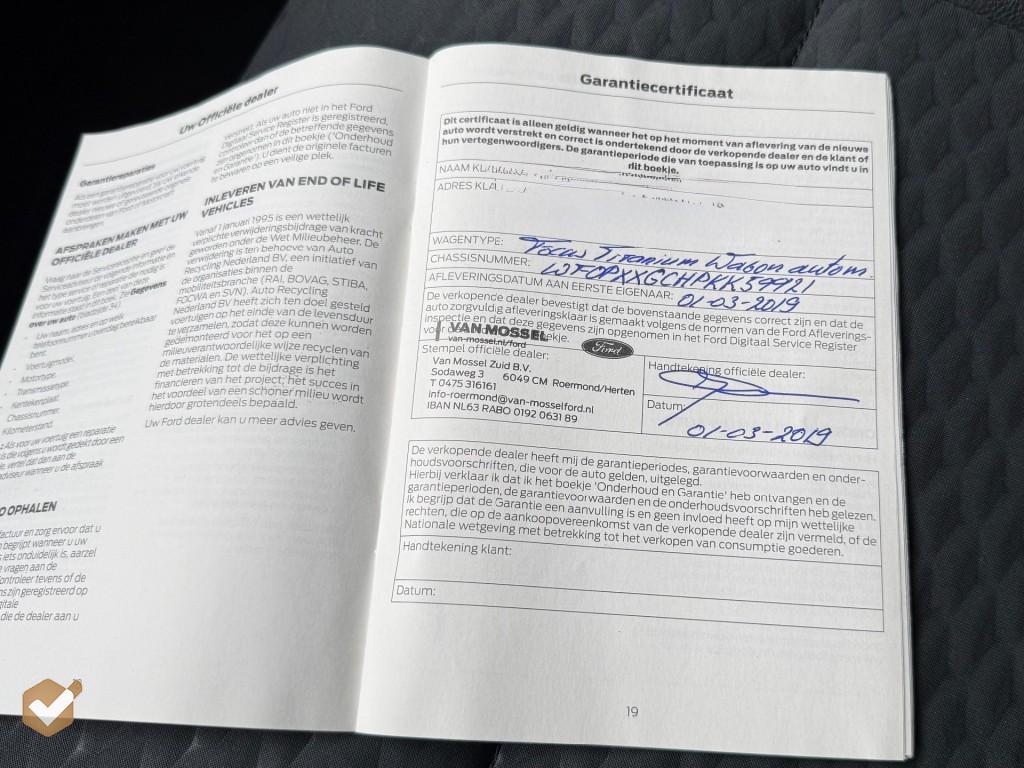 Uw Officiële dealer
Garantiereparaties
AFSPRAKEN MAKEN MET UW
OFFICIËLE DEALER
over uw auto
bent.
- Voertuigmodel.
- Motortype.
- Transmissietype.
- Kentekenplaat.
- Chassisnummer.
Kilometerstand.
Als voor uw voertuig een reparatie
O OPHALEN
factuur en zorg ervoor dat u
begrijpt wanneer u uw
iets onduidelijk is, aarzel
vragen aan de
ontroleer tevens of de
zijn geregistreerd op
die de dealer aan u
verstrekt. Als uw auto niet in het Ford
Digitaal Service Register is geregistreerd,
controleer dan of de betreffende gegevens
zijn opgenomen in dit boekje ('Onderhoud
en Garantie'). U dient de originele facturen
te bewaren op een veilige plek.
INLEVEREN VAN END OF LIFE
VEHICLES
Vanaf 1 januari 1995 is een wettelijk
verplichte verwijderingsbijdrage van kracht
geworden onder de Wet Milieubeheer. De
verwijdering is ten behoeve van Auto
Recycling Nederland BV, een initiatief van
de organisaties binnen de
mobiliteitsbranche (RAI, BOVAG, STIBA,
FOCWA en SVN). Auto Recycling
Nederland BV heeft zich ten doel gesteld
voertuigen op het einde van de levensduur
te verzamelen, zodat deze kunnen worden
gedemonteerd voor het op een
milieuverantwoordelijke wijze recyclen van
de materialen. De wettelijke verplichting
met betrekking tot de bijdrage is het
financieren van het project; het succes in
het voordeel van een schoner milieu wordt
hierdoor grotendeels bepaald.
Uw Ford dealer kan u meer advies geven.
Garantiecertificaat
Dit certificaat is alleen geldig wanneer het op het moment van aflevering van de nieuwe
auto wordt verstrekt en correct is ondertekend door de verkopende dealer en de klant of
hun vertegenwoordigers. De garantieperiode die van toepassing is op uw auto vindt u in
dit boekje.
NAAM
ADRES
WAGENTYPE: Focus Titanium Wagon autom.
CHASSISNUMMER: WFOPXXGCHPKK59921
AFLEVERINGSDATUM AAN EERSTE EIGENAAR: 01-03-2019
De verkopende dealer bevestigt dat de bovenstaande gegevens correct zijn en dat de
auto zorgvuldig afleveringsklaar is gemaakt volgens de normen van de Ford Afleverings-
inspectie en dat deze gegevens zijn opgenomen in het Ford Digitaal Service Register
VAN MOSSEL
van-mossel.nl/ford
Ford
Stempel officiële dealer:
Van Mossel Zuid B.V.
Sodaweg 3 6049 CM Roermond/Herten
T 0475 316161
info-roermond@van-mosselford.nl
IBAN NL63 RABO 0192 0631 89
Handtekening officiële dealer:
Datum:
01-03-2019
De verkopende dealer heeft mij de garantieperiodes, garantievoorwaarden en onder-
houdsvoorschriften, die voor de auto gelden, uitgelegd.
Hierbij verklaar ik dat ik het boekje 'Onderhoud en Garantie' heb ontvangen en de
garantieperioden, de garantievoorwaarden en de onderhoudsvoorschriften heb gelezen.
Ik begrijp dat de Garantie een aanvulling is en geen invloed heeft op mijn wettelijke
rechten, die op de aankoopovereenkomst van de verkopende dealer zijn vermeld, of de
Nationale wetgeving met betrekking tot het verkopen van consumptie goederen.
Handtekening klant:
Datum:
19